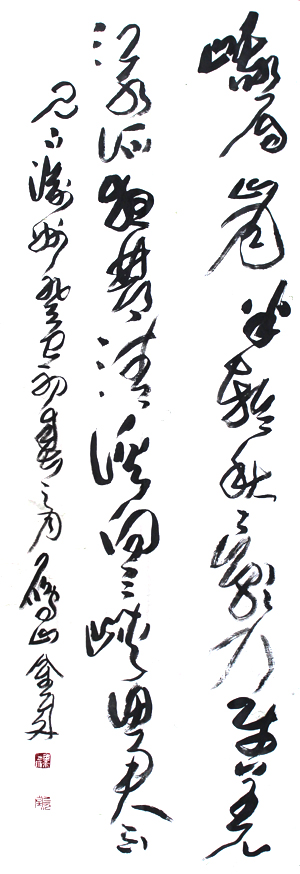 峨眉山月半轮秋影入平羌
江水流夜发清溪向三峡思君不
见下渝州癸巳初春之月雁山金